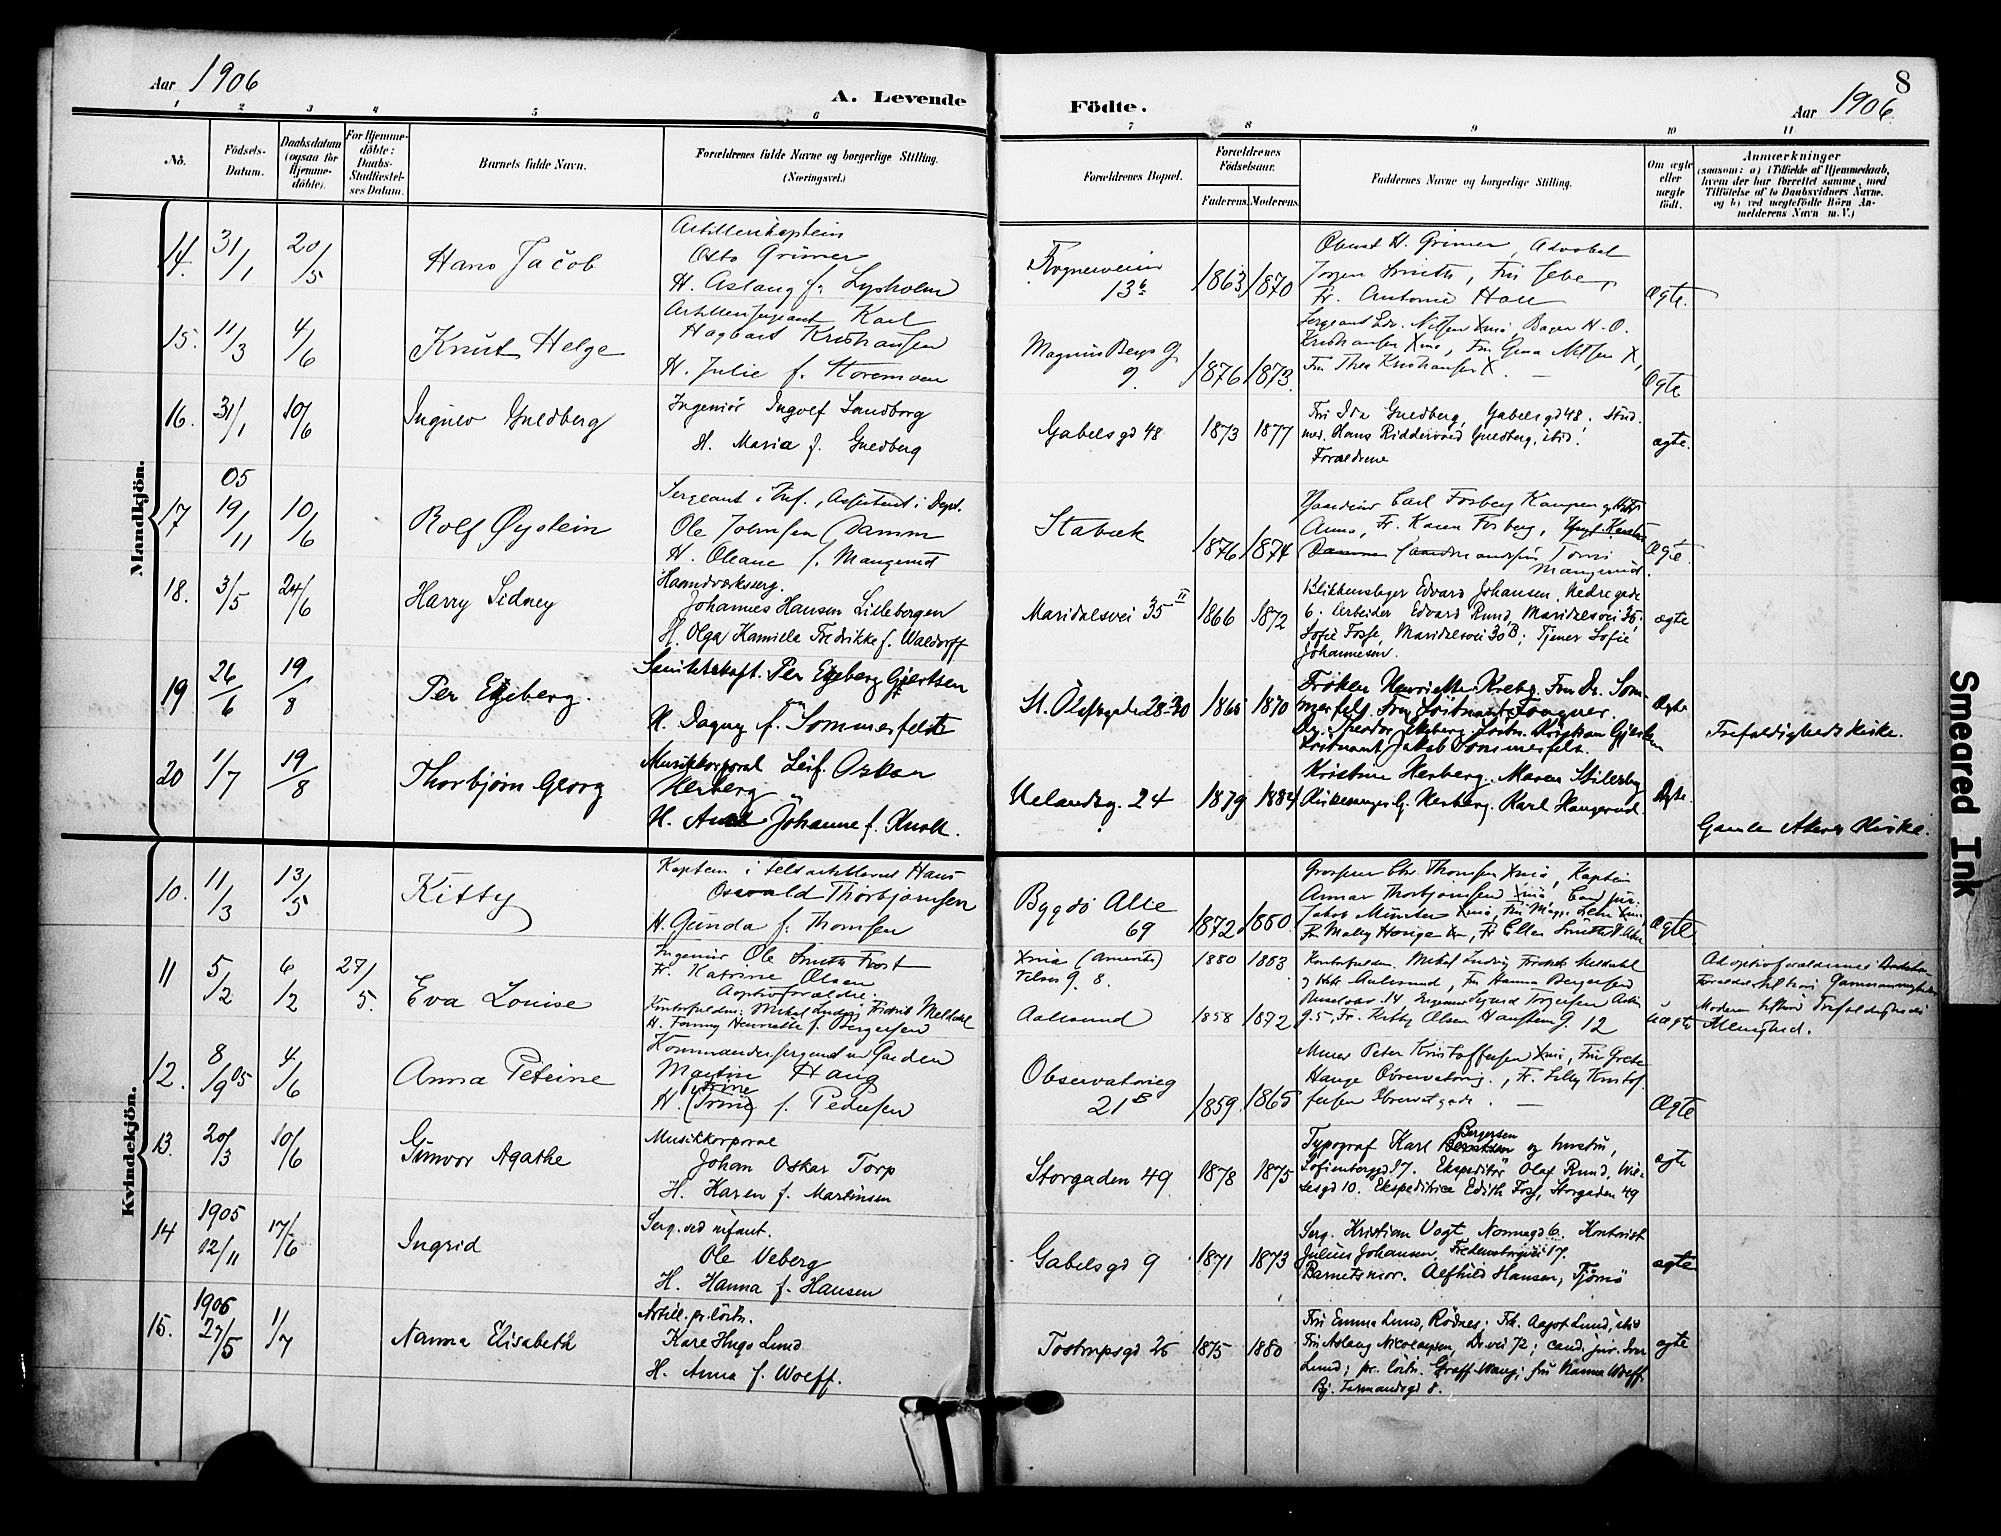 Aar 1906
A. Levende
Födte.
Aar 1906
8
1 2 3 4 5 6
7 8 9 10 11
No.
Födsels-
Datum.
Daabsdatum
(ogsaa for
Hjemme-
döbte).
For Hjemme-
döbte:
Daabs-
Stadfæstel-
ses Datum.
Barnets fulde Navn.
Forældrenes fulde Navne og borgerlige Stilling.
(Næringsvei.)
Forældrenes Bopæl.
Forældrenes
Födselsaar.
Faderens. Moderens.
Faddernes Navne og borgerlige Stilling.
Om ægte
eller
uægte
födt.
Anmærkninger
(saasom: a) i Tilfælde af Hjemmedaab,
hvem der har forrettet samme, med
Tilföielse af to Daabsvidners Navne.
og b) ved uægtefödte Börn An-
melderens Navn m. V.)
Mandkjön.
14. 31/1 20/5
Hans Jacob
Artillerikaptein
Otto Grimer
H. Aslaug f. Lysholm
Frognerveien
13b
1863 1870
Oberst H. Grimer, Advokat
Jørgen Smith, Fru
Fr. Antonie
Ægte.
15. 11/3 4/6
Knut Helge
Artillerisergeant Karl
Hagbart Kristiansen
H. Julie f. Storemoen
Magnus Bergs G.
9.
1876 1873.
Sergeant Ldv. Nilsen Xnia, Bager H. O.
Kristiansen Xnia, Fru Gina Nilsen X,
Fru Thea Kristiansen X.
Ægte
16. 31/1 10/6
Ingulv Guldberg
Ingeniör Ingolf Sandborg
H. Maria f. Guldberg
Gabelsgd 48
1873 1877
Fru Ida Guldberg, Gabelsgd 48; Stud.
med. Hans Riddervold Guldberg, ibid.
Forældrene
ægte.
17 05 19/11 10/6
Rolf Øystein
Sergeant i Inf., Assistent i Dept.
Ole Johnsen Damm
H. Oleane f. Mangerud
Stabæk
1876 1874
Gaardeier Carl Fosberg Kampen og Hustr.
Anna, Fr. Karen Fosberg,
Mangerud.
Ægte.
18. 3/5 24/6
Harry Sidney
Haandværkssерg.
Johannes Hansen Lillebergen
H. Olga Kamilla Fredrikke f. Waldorff
Maridalsvei 35 II
1866 1872
Blikkenslager Edvard Johansen, Nedregade
6. Arbeider Edvard Rund, Maridalsvei 35;
Sofie Foss, Maridalsvei 30B; Tjener Sofie
Johannesen.
ægte
19 26/6 19/8
Per Ekeberg.
Sanitetskapt. Per Ekeberg Gjertsen
H. Dagny f. Sommerfeldt
St. Olafsgade 28-30
1865 1870
Frøken Henriette Krebs. Fru Dr. Som-
merfelt. Fru Løitnant Longuer.
Dr. Theodor Ekeberg. Løitn. Kristian Gjertsen
Løitnant Jakob Sommerfelt.
Ægte
Trefoldigheds Kirke.
20 1/7 19/8
Thorbjörn Georg
Musikkorporal Leif Oskar
Herberg
H. Anna Johanne f. Knoll.
Uelandsg. 24
1879 1884
Kristine Herberg. Maren
G. Herberg. Karl Haugerud.
Ægte.
Gamle Akers Kirke.
Kvindekjön.
10. 11/3 13/5
Kitty
Kaptein i Feltartilleriet Hans
Osvald Thorbjørnsen
H. Gunda f. Thomsen
Bygdö Alle
69
1872 1880
Grosserer Chr. Thomsen Xnia, Kaptein
Annar Thorbjørnsen Xnia Cand. jur.
Jakob Münster Xnia,
Ægte
11 5/2 6/2 27/5.
Eva Louise
Ingeniør Ole Smith Frost
Fr. Katrine Olsen
Adoptivforældre:
Kontorfuldm. Mikal Ludvig Fredrik Meldahl
H. Fanny Henriette f. Bergersen
Xnia (Amerika)
Nilses g. 8.
Aalesund
1880 1883
1858 1872
Kontorfuldm. Mikal Ludvig Fredrik Meldahl
og Hstr. Aalesund, Fru Hanna Bergersen
g. 5, Fr. Kitty Olsen Hansteens g. 12
uægte
Adoptivforældrenes
Moderen tilhører Trefoldigheds
Menighed.
12. 8/9 05 4/6
Anna Petrine
Kommandersergeant v. Garden
Martin Haug
H. Trine f. Pedersen
Observatorieg
21B
1859 1865
Murer Peter Kristoffersen Xnia, Fru Grete
Hauge Observatorieg., Fr. Lilly Kristof-
fersen Observatgade.
Ægte
13. 20/3 10/6
Gunvor Agathe
Musikkorporal
Johan Oskar Torp
H. Karen f. Martinsen
Storgaden 49
1878 1875
Typograf Karl Bergersen og hustru,
Sofienberggd 17. Ekspeditör Olaf Rund, Wil-
sesgd 10. Ekspeditrice Edith Foss, Storgaden 49
ægte
14 1905 12/11 17/6
Ingrid
Serg. ved infant.
Ole Veberg
H. Hanna f. Hansen
Gabelsgd 9
1871 1873
Serg. Kristian Vogt, Nonnegd 6. Kontorist
Julius Johansen, Fredensborgvei 17.
Barnets mor. Alfhild Hansen, Tjömö
ægte
15. 1906 27/5 1/7
Nanna Elisabeth
Artill. pr. löitn.
Kare Hugo Lund
H. Anna f. Wolff.
Tostrupsgd 26
1875 1880
Fru Emma Lund, Rödnes; Frk. Aagot Lund, ibid
Fru Aslaug Nicolaysen, Dr.vei 72; cand. jur. Ivar
Lund; pr. löitn. Graff-Wang; fru Nanna Wolff.
Bj. Farmandsgd 8.
ægte
Smeared Ink